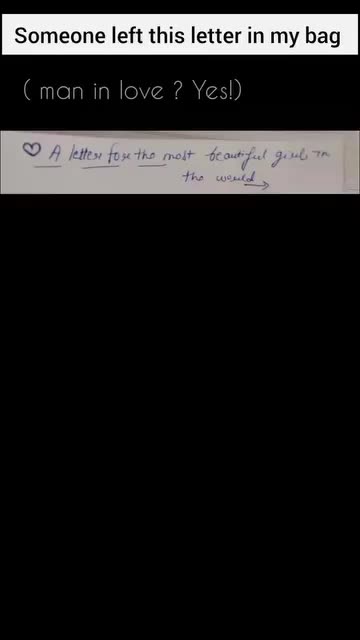 Someone left this letter in my bag
( man in love ? Yes!)
♡ A letter for the most beautiful girl in
the world →